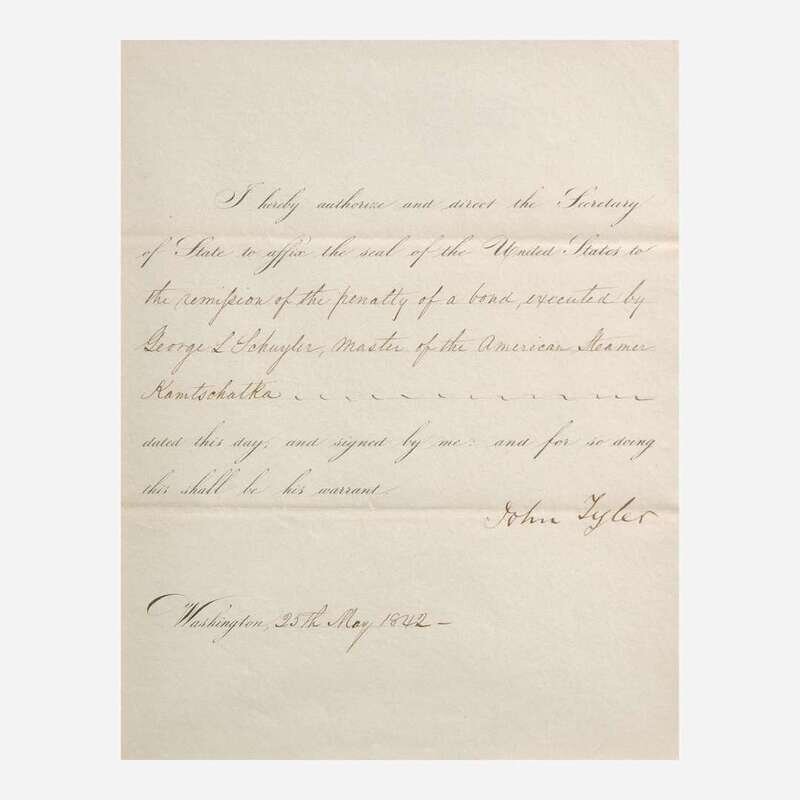 I hereby authorize and direct the Secretary
of State to affix the seal of the United States to
the remission of the penalty of a bond, executed by
George L Schuyler, Master of the American Steamer
Kamtschatka
dated this day, and signed by me: and for so doing
this shall be his warrant.
John Tyler
Washington, 25th May 1842 –